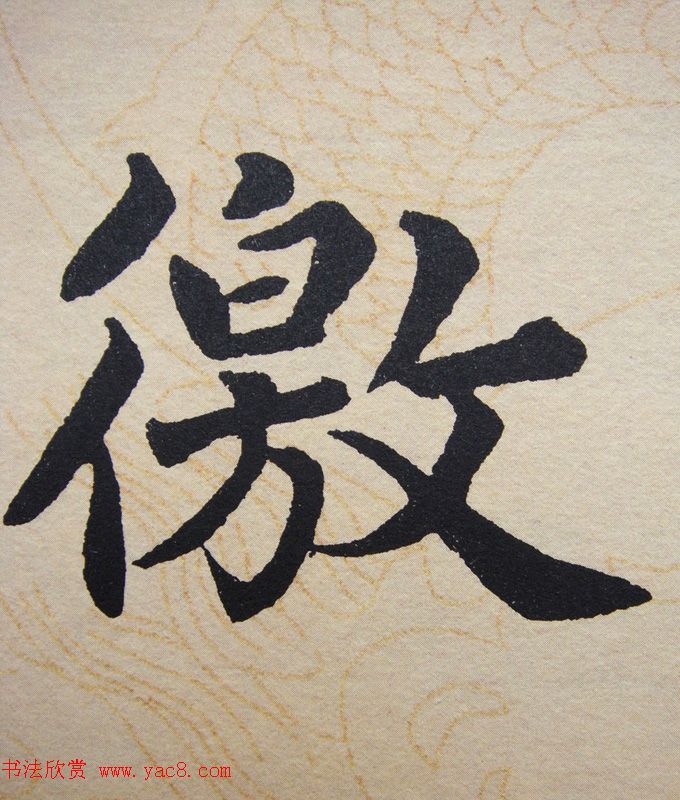 徼
书法欣赏 www.yac8.com